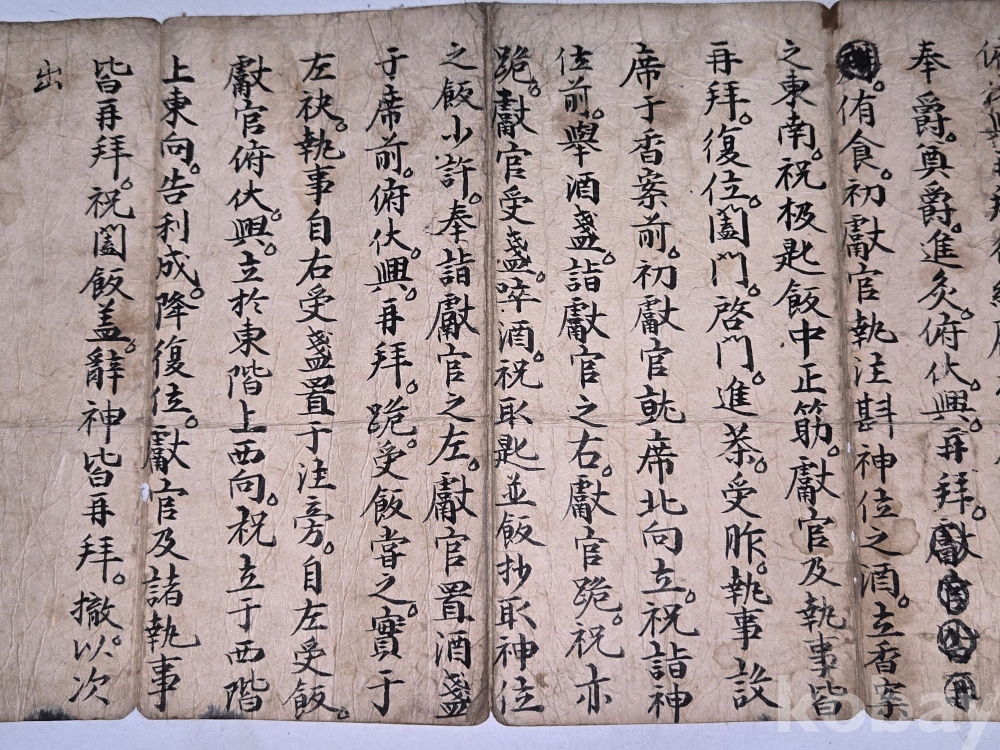 奉爵。奠爵。進炙。俯伏。興。再拜。獻官
侑食。初獻官執注斟神位之酒。立香案
之東南。祝极匙飯中正筯。獻官及執事皆
再拜。復位。闔門。啓門。進茶。受胙。執事設
席于香案前。初獻官就席北向立。祝詣神
位前。舉酒盞。詣獻官之右。獻官跪。祝亦
跪。獻官受盞。啐酒。祝取匙並飯抄取神位
之飯少許。奉詣獻官之左。獻官置酒盞
于席前。俯伏。興。再拜。跪。受飯嘗之。實于
左袂。執事自右受盞置于注旁。自左受飯。
獻官俯伏。興。立於東階上西向。祝立于西階
上東向。告利成。降復位。獻官及諸執事
皆再拜。祝闔飯盖。辭神皆再拜。撤。以次
出
kobay